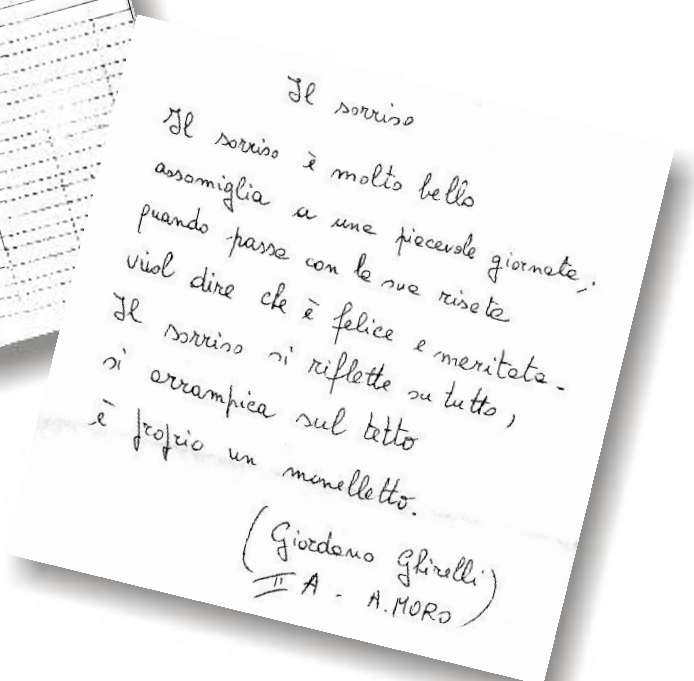 Il sorriso
Il sorriso è molto bello
assomiglia a una piacevole giornata;
quando passa con le sue risate
vuol dire che è felice e meritata.
Il sorriso si riflette su tutto,
si arrampica sul tetto
è proprio un monelletto.
(Giordano Ghirelli)
II A - A. MORO